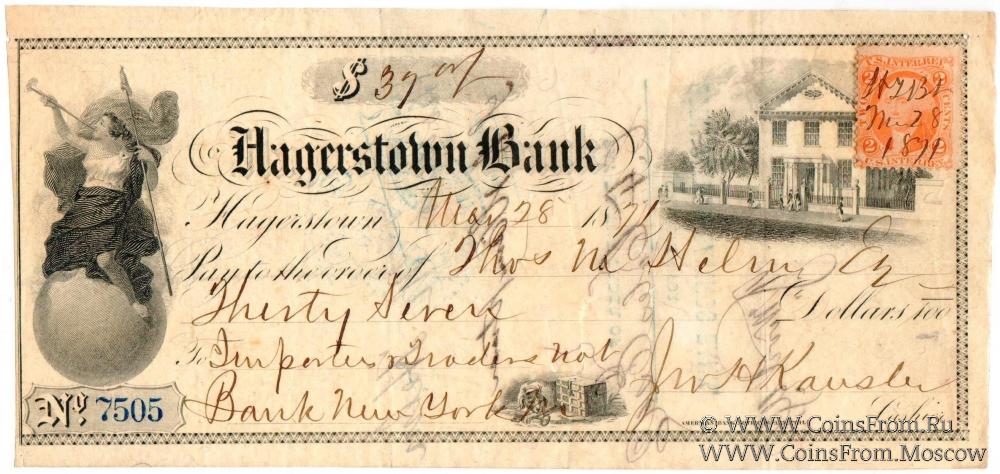 $ 37 00/
Hagerstown Bank
Hagerstown Mar 28 1871
Pay to the order of Thos M Helm Esq
Thirty Seven Dollars 100
To Importers & Traders Nat
Bank New York
Jno H Kausler
Cashier
No. 7505
U.S. INTER. REV.
2 2
CENTS
2 2
U.S. INTER. REV.
H. Bk
Mar 28
1871
© WWW.COINSFROM.RU
WWW.COINSFROM.MOSCOW